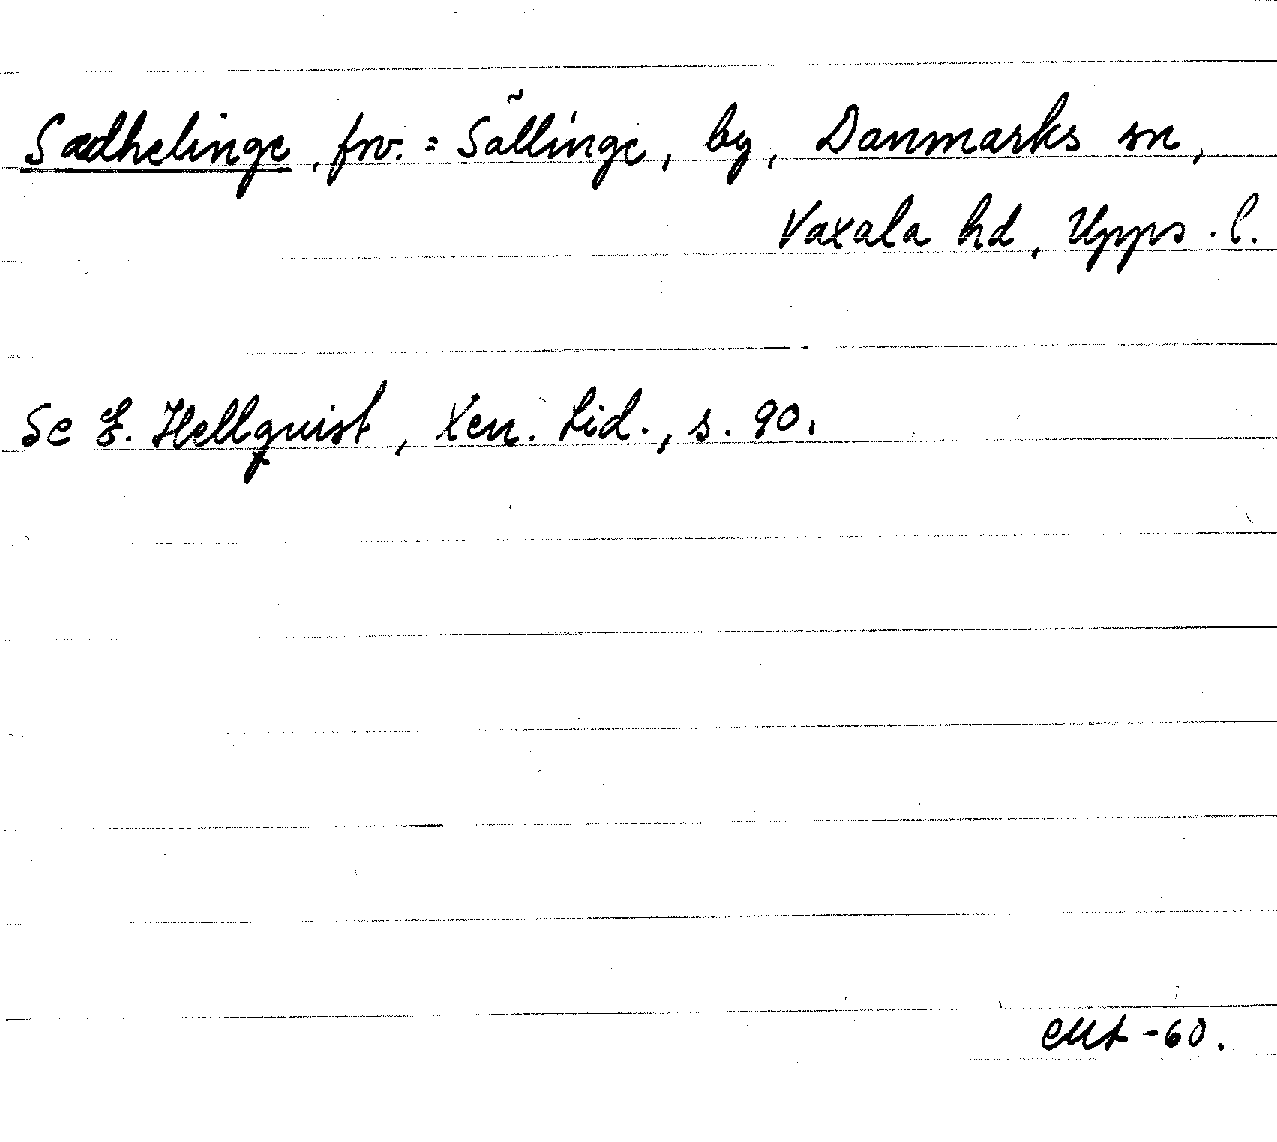 Sædhelinge, fsv. = Sällinge, by, Danmarks sn,
Vaxala hd, Upps. l.
Se E. Hellqvist, Xen. Lid., s. 90.
-60.